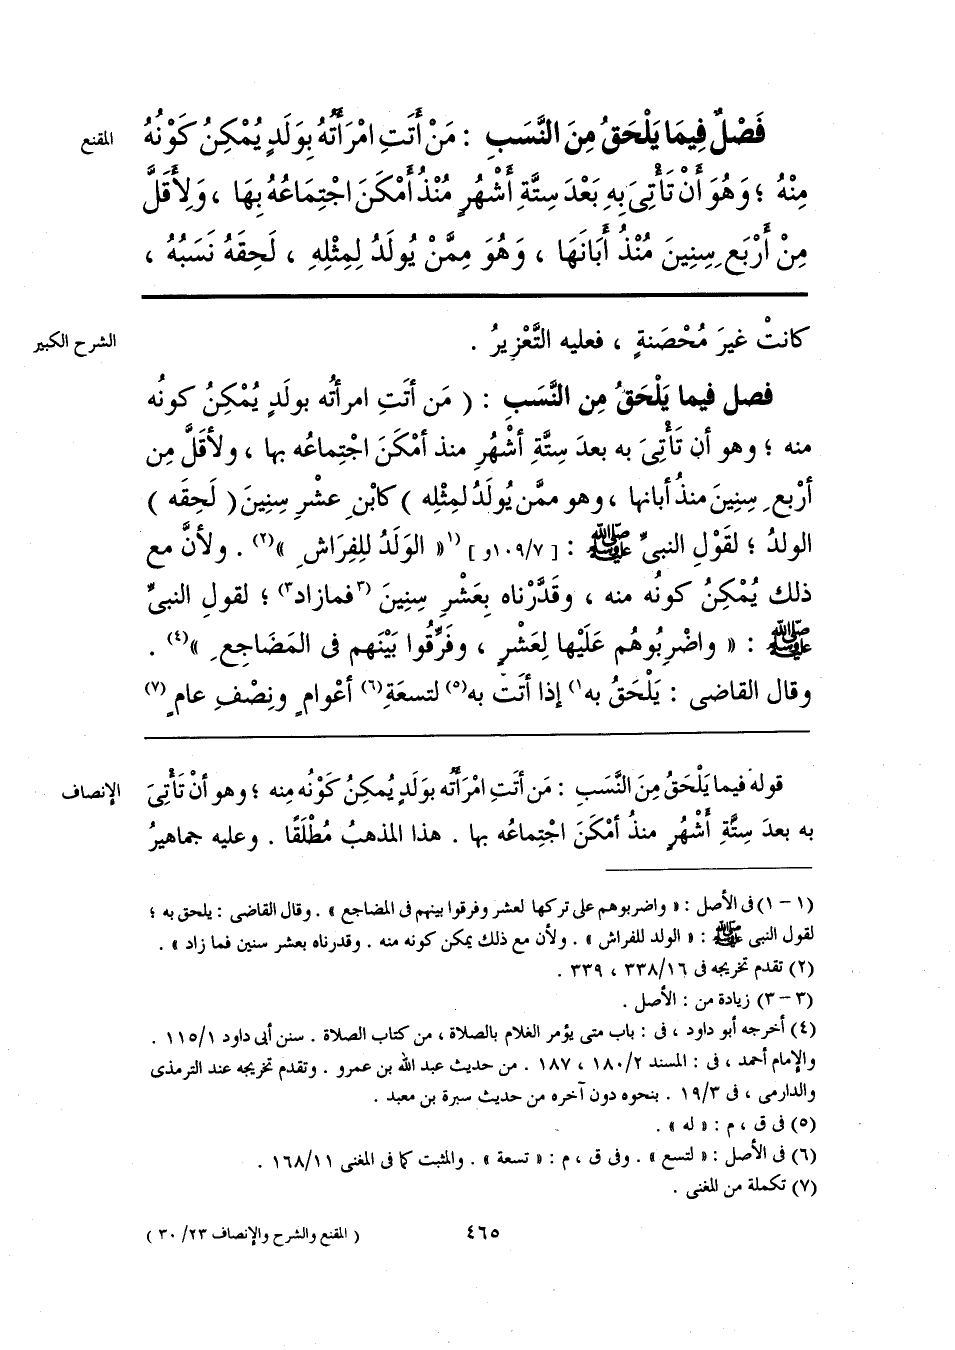 المقنع
فَصْلٌ فِيمَا يَلْحَقُ مِنَ النَّسَبِ : مَنْ أَتَتِ امْرَأَتُهُ بِوَلَدٍ يُمْكِنُ كَوْنُهُ
مِنْهُ ؛ وَهُوَ أَنْ تَأْتِىَ بِهِ بَعْدَ سِتَّةِ أَشْهُرٍ مُنْذُ أَمْكَنَ اجْتِمَاعُهُ بِهَا ، وَلِأَقَلَّ
مِنْ أَرْبَعِ سِنِينَ مُنْذُ أَبَانَهَا ، وَهُوَ مِمَّنْ يُولَدُ لِمِثْلِهِ ، لَحِقَهُ نَسَبُهُ ،
الشرح الكبير
كانتْ غيرَ مُحْصَنةٍ ، فعليه التَّعْزِيرُ .
فصل فيما يَلْحَقُ مِن النَّسَبِ : ( مَن أتَتِ امرأتُه بولَدٍ يُمْكِنُ كونُه
منه ؛ وهو أن تَأْتِىَ به بعدَ سِتَّةِ أشْهُرٍ منذ أمْكَنَ اجْتِماعُه بها ، ولأقَلَّ مِن
أرْبعِ سِنِينَ منذُ أبانها ، وهو ممَّن يُولَدُ لمِثْلِه ) كابْنِ عشْرِ سِنِينَ ( لَحِقَه )
الولدُ ؛ لقَوْلِ النبىِّ ﷺ : [ ١٠٩/٧و ] (١« الوَلَدُ للِفِرَاشِ »(٢) . ولأنَّ مع
ذلك يُمْكِنُ كونُه منه ، وقَدَّرْناه بِعَشْرِ سِنِينَ (٣فمازاد٣) ؛ لقولِ النبىِّ
ﷺ : « واضْرِبُوهم عَلَيْها لِعَشْرٍ ، وفَرِّقُوا بَيْنَهم فى المَضَاجِعِ »(٤) .
وقال القاضى : يَلْحَقُ به١) إذا أتَتْ به(٥) لتسعَةِ(٦) أعْوامٍ ونِصْفِ عامٍ(٧)
الإنصاف
قوله فيما يَلْحَقُ مِنَ النَّسَبِ : مَن أتَتِ امْرَأَتُه بوَلَدٍ يُمكِنُ كَوْنُه مِنه ؛ وهو أنْ تَأْتِىَ
به بعدَ سِتَّةِ أَشْهُرٍ منذُ أمْكَنَ اجْتِماعُه بها . هذا المذهبُ مُطْلَقًا . وعليه جماهيرُ
(١ - ١) فى الأصل : « واضربوهم على تركها لعشر وفرقوا بينهم فى المضاجع » . وقال القاضى : يلحق به ؛
لقول النبى ﷺ : « الولد للفراش » . ولأن مع ذلك يمكن كونه منه . وقدرناه بعشر سنين فما زاد » .
(٢) تقدم تخريجه فى ٣٣٨/١٦ ، ٣٣٩ .
(٣ - ٣) زيادة من : الأصل .
(٤) أخرجه أبو داود ، فى : باب متى يؤمر الغلام بالصلاة ، من كتاب الصلاة . سنن أبى داود ١١٥/١ .
والإمام أحمد ، فى : المسند ١٨٠/٢ ، ١٨٧ . من حديث عبد الله بن عمرو . وتقدم تخريجه عند الترمذى
والدارمى ، فى ١٩/٣ . بنحوه دون آخره من حديث سبرة بن معبد .
(٥) فى ق ، م : « له » .
(٦) فى الأصل : « لتسع » . وفى ق ، م : « تسعة » . والمثبت كما فى المغنى ١٦٨/١١ .
(٧) تكملة من المغنى .
٤٦٥
( المقنع والشرح والإنصاف ٣٠/٢٣ )